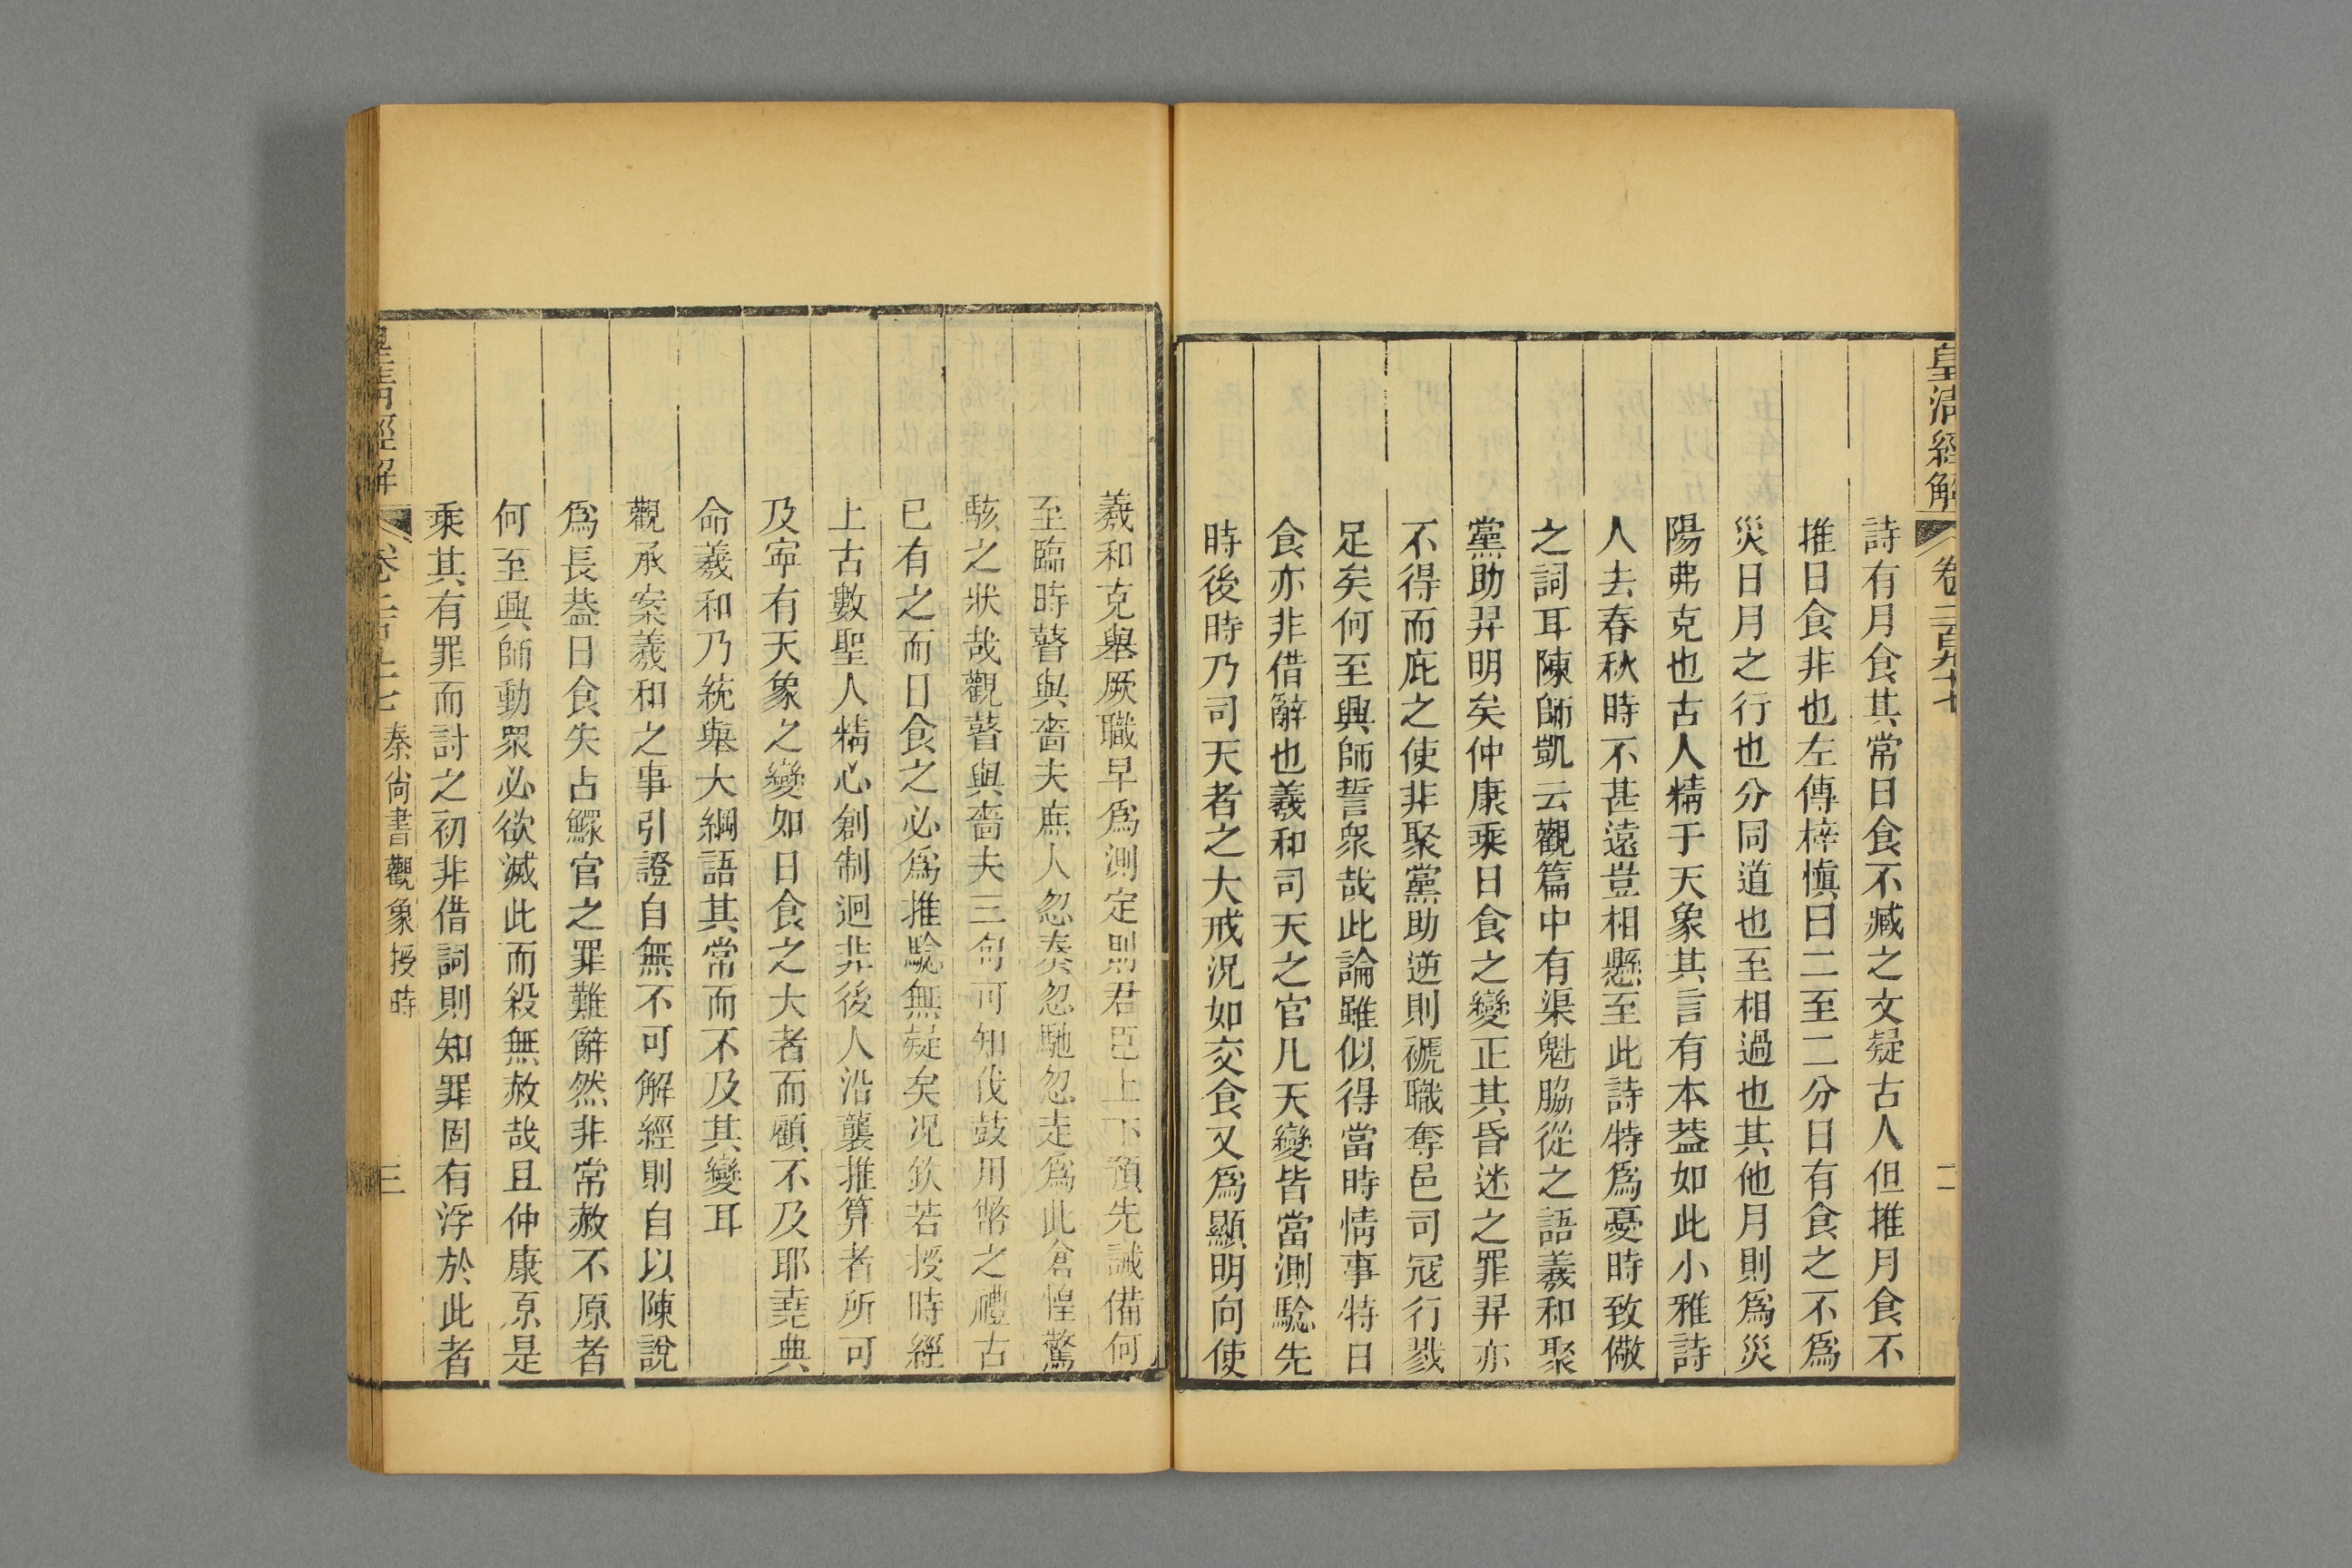 皇清經解
卷二百九十七
二
詩有月食其常日食不臧之文疑古人但推月食不
推日食非也左傳梓慎曰二至二分日有食之不爲
災日月之行也分同道也至相過也其他月則爲災
陽弗克也古人精于天象其言有本葢如此小雅詩
人去春秋時不甚遠豈相懸至此詩特爲憂時致儆
之詞耳陳師凱云觀篇中有渠魁脇從之語羲和聚
黨助羿明矣仲康乘日食之變正其昏迷之罪羿亦
不得而庇之使非聚黨助逆則褫職奪邑司寇行戮
足矣何至興師誓衆哉此論雖似得當時情事特日
食亦非借辭也羲和司天之官凡天變皆當測騐先
時後時乃司天者之大戒況如交食又爲顯明向使
羲和克舉厥職早爲測定則君臣上下預先誡備何
至臨時瞽與嗇夫庶人忽奏忽馳忽走爲此倉惶驚
駭之狀哉觀瞽與嗇夫三句可知伐鼓用幣之禮古
已有之而日食之必爲推騐無疑矣况欽若授時經
上古數聖人精心創制迥非後人沿襲推算者所可
及寧有天象之變如日食之大者而顧不及耶堯典
命羲和乃統舉大綱語其常而不及其變耳
觀承案羲和之事引證自無不可解經則自以陳說
爲長葢日食失占鰥官之罪難辭然非常赦不原者
何至興師動眾必欲滅此而殺無赦哉且仲康原是
乘其有罪而討之初非借詞則知罪固有浮於此者
皇清經解
秦尚書觀象授時
三